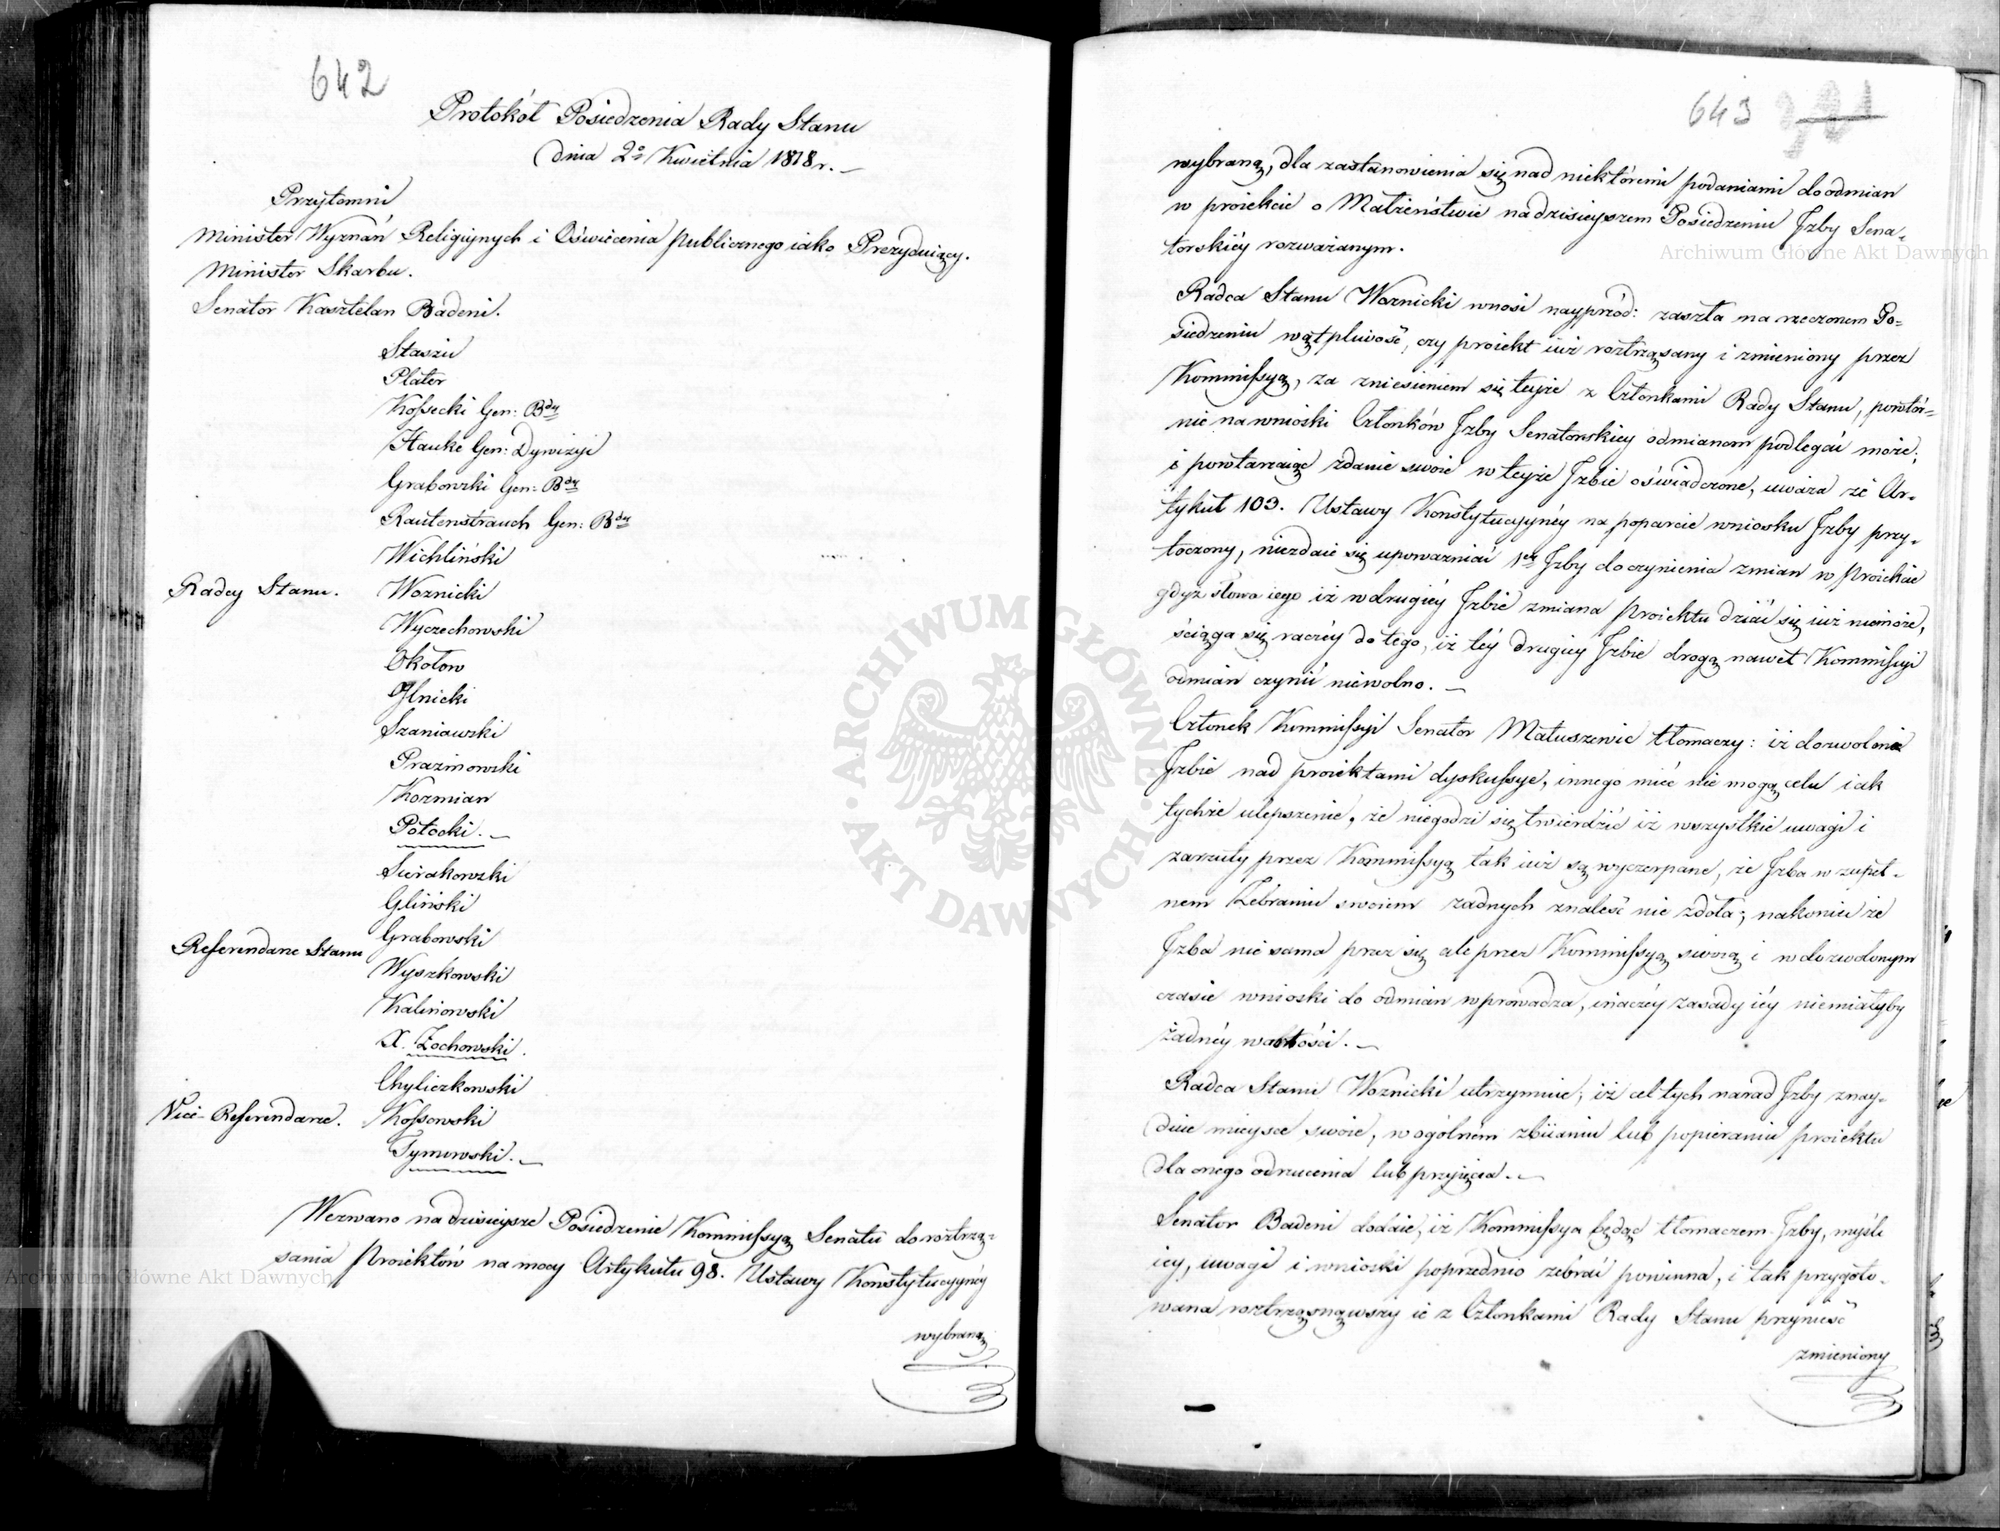 642
Protokół Posiedzenia Rady Stanu
dnia 2º Kwietnia 1818 r. —
Przytomni
Minister Wyznań Religiynych i Oświecenia publicznego iako Prezyduiący.
Minister Skarbu.
Senator Kasztelan Badeni.
Staszic
Plater
Kossecki Gen: Bdy
Hauke Gen: Dywizyi
Grabowski Gen: Bdy
Rautenstrauch Gen: Bdy
Wichliński
Radcy Stanu. Woznicki
Wyczechowski
Okołow
Glnicki
Szaniawski
Prazmowski
Kozmian
Potocki. —
Sierakowski
Gliński
Grabowski
Referendarze Stanu
Wyszkowski
Kalinowski
X. Żochowski.
Chyliczkowski
Vice-Referendarze. Kossowski
Tymowski. —
Wezwano na dzisieysze Posiedzenie Kommissyą Senatu do roztrzą-
sania Proiektów na mocy Artykułu 98. Ustawy Konstytucyynéy
wybraną
643
wybraną, dla zastanowienia się nad niektóremi podaniami do odmian
w proiekcie o Małżeństwie na dzisieyszem Posiedzeniu Jzby Sena-
torskiéy rozważanym.
Radca Stanu Woznicki wnosi nayprzód: zaszła na rzeczonem Po-
siedzeniu wątpliwość, czy proiekt iuż roztrząsany i zmieniony przez
Kommissyą, za zniesieniem się teyże z Członkami Rady Stanu, powtór-
nie na wnioski Członków Jzby Senatorskiey odmianom podlegać może;
i powtarzaiąc zdanie swoie w teyże Jzbie oświadczone, uważa że Ar-
tykuł 103. Ustawy Konstytucyynéy na poparcie wniosku Jzby przy-
toczony, niezdaie się upoważniać 1ey Jzby do czynienia zmian w proiekcie
gdyż słowa iego iż w drugiéy Jzbie zmiana proiektu dziać się iuż niemoże,
ściąga się raczéy do tego, iż téy drugiéy Jzbie drogą nawet Kommissyi
odmian czynić niewolno. —
Członek Kommissyi Senator Matuszewic tłomaczy: iż dozwolone
Jzbie nad proiektami dyskussye, innego mieć nie mogą celu iak
tychże ulepszenie, że niegodzi się twierdzić iż wszystkie uwagi i
zarzuty przez Kommissyą tak iuż są wyczerpane, że Jzba w zupeł-
nem Zebraniu swoiem żadnych znaleść nie zdoła; nakoniec że
Jzba nie sama przez się ale przez Kommissyą swoią i w dozwolonym
czasie wnioski do odmian wprowadza, inaczéy zasady iéy niemiałyby
żadnéy wartości. —
Radca Stanu Woznicki utrzymuie, iż cel tych narad Jzby znay-
duie mieysce swoie, w ogólnem zbiianiu lub popieraniu proiektu
dla onego odrzucenia lub przyięcia. —
Senator Badeni dodaie, iż Kommissya będąc tłomaczem Jzby, myśli
iey, uwagi i wnioski poprzednio zebrać powinna, i tak przygoto-
wana roztrząsnąwszy ie z Członkami Rady Stanu przynieść
zmieniony
ARCHIWUM GŁÓWNE AKT DAWNYCH
Archiwum Główne Akt Dawnych
Archiwum Główne Akt Dawnych